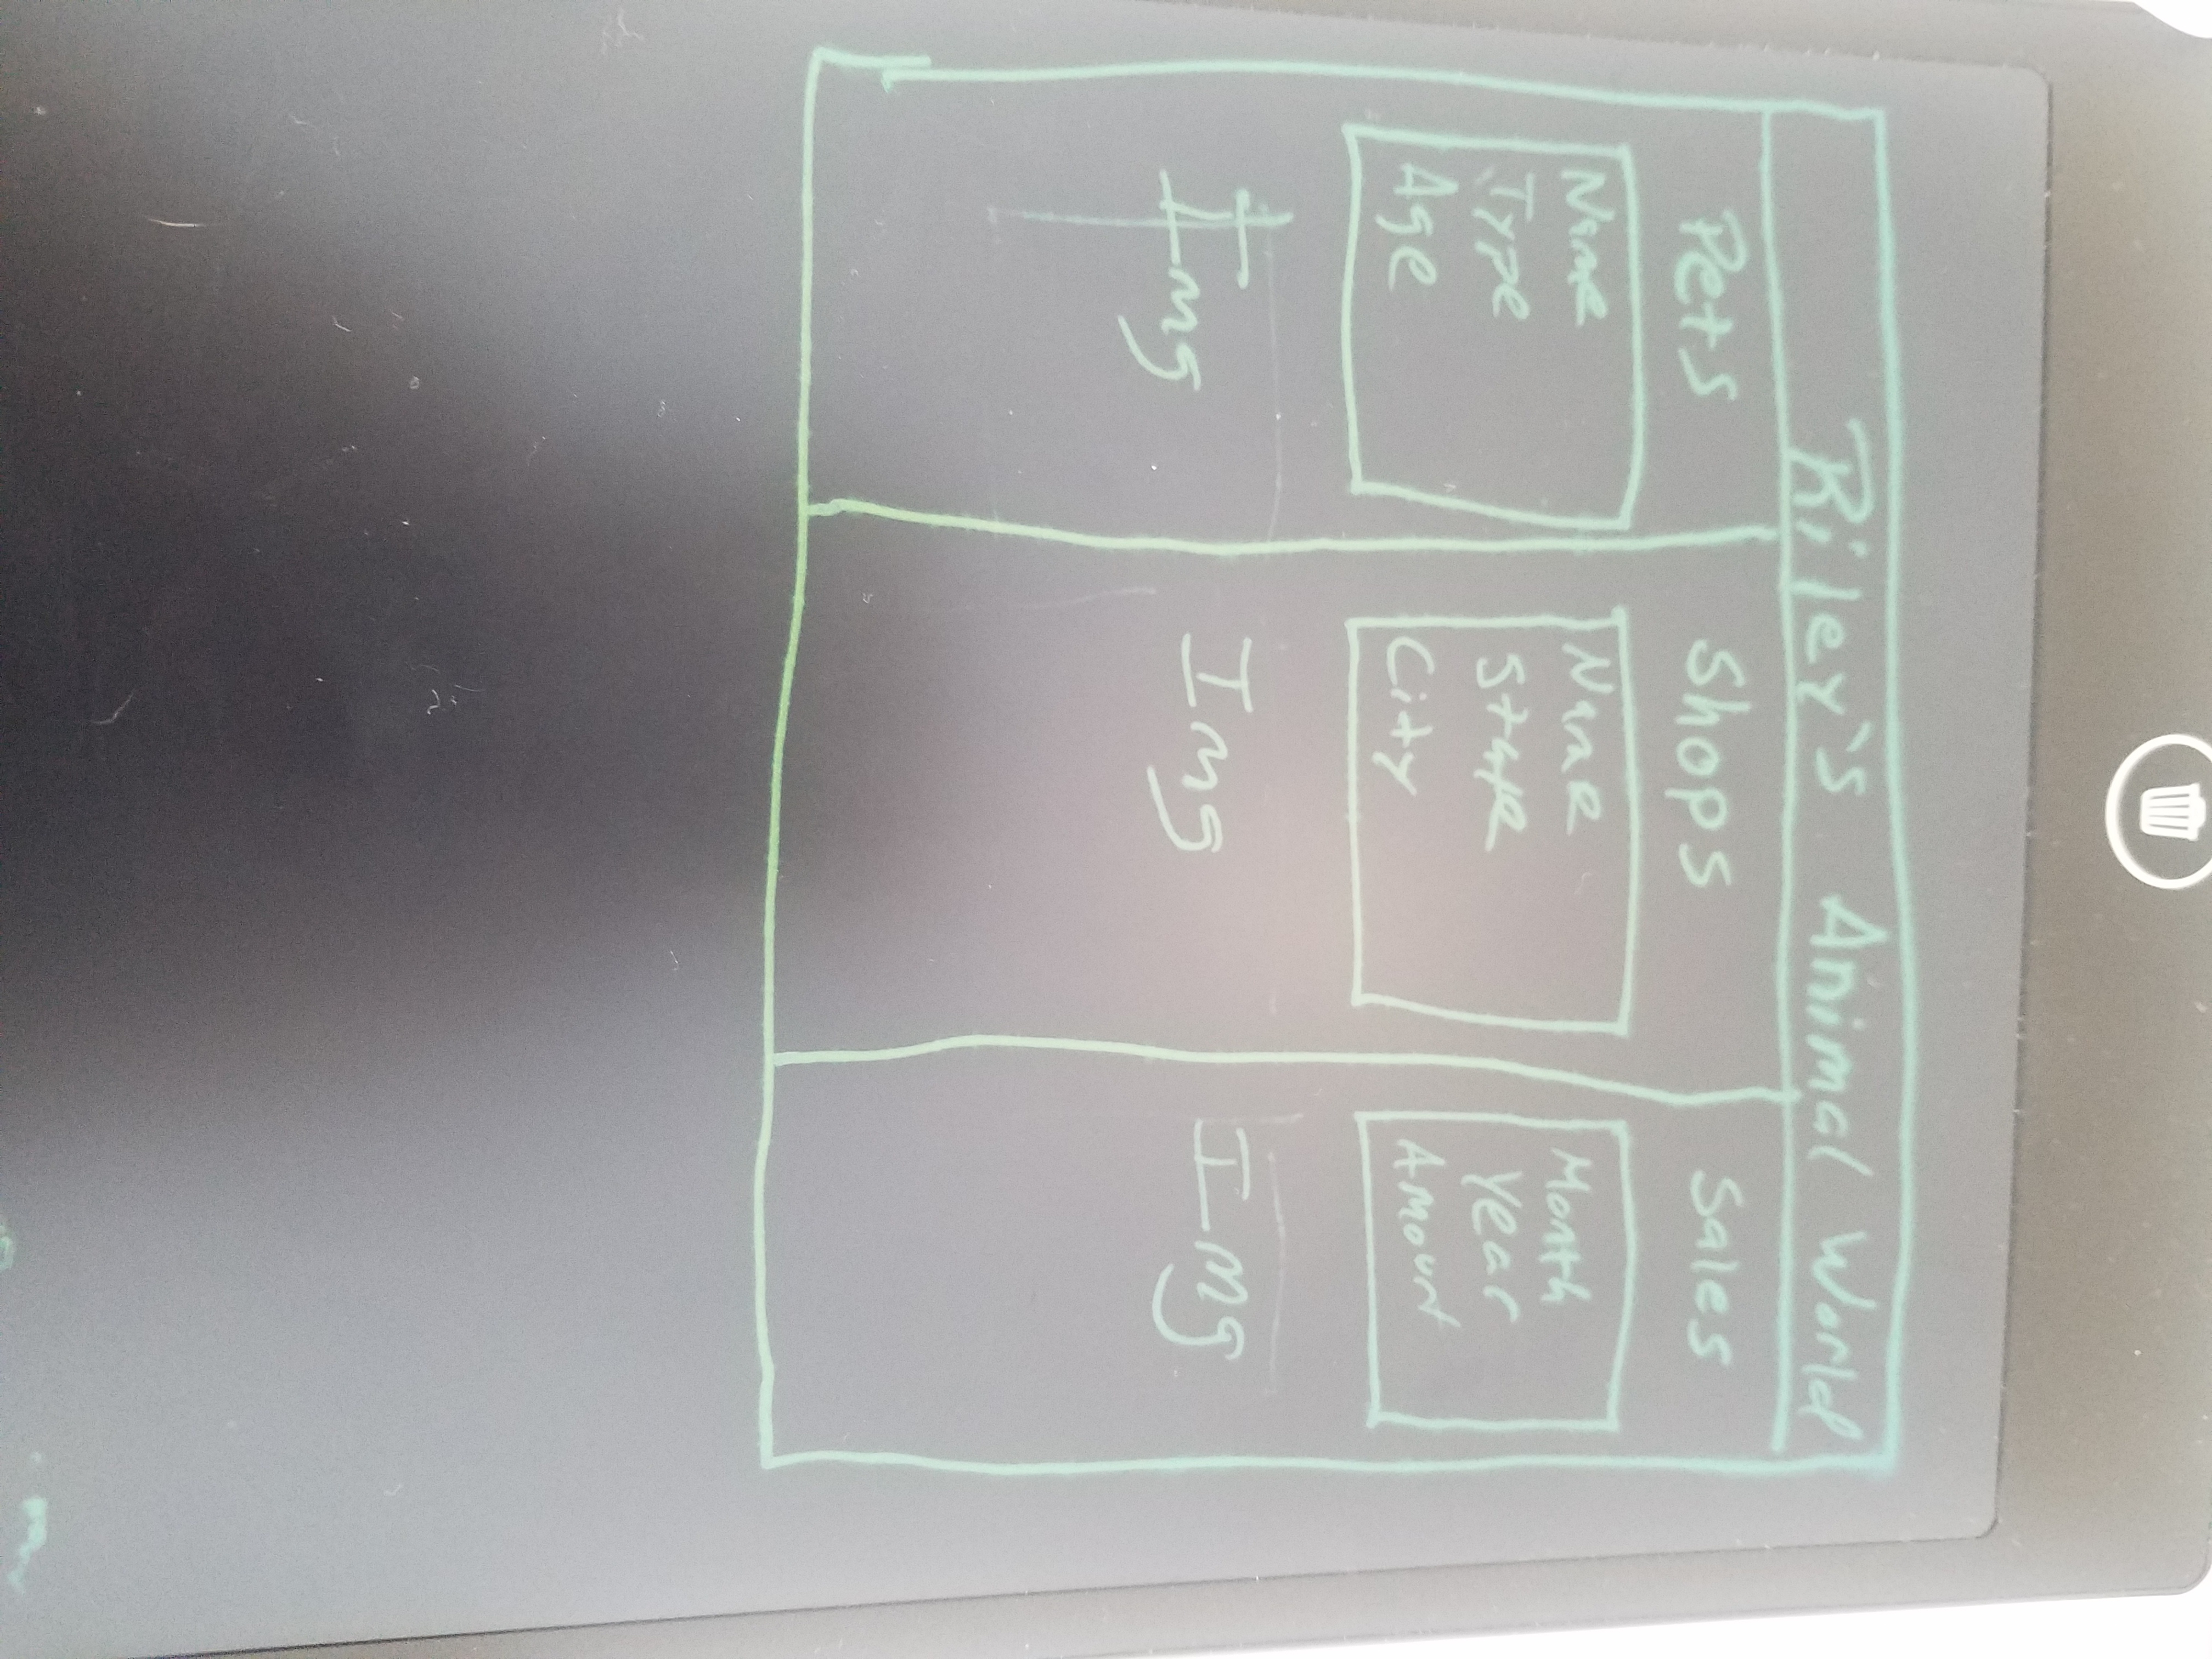 Riley's Animal World
Pets
Name
Type
Age
Img
Shops
Name
City
Img
Sales
Month
Year
Amount
Img